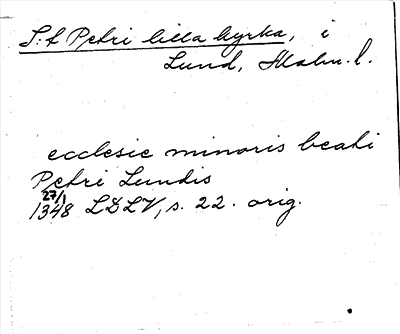 S:t Petri lilla kyrka, i
Lund, Malm. l.
ecclesie minoris beati
Petri Lundis
27/1
1348 LDLV, s. 22. orig.